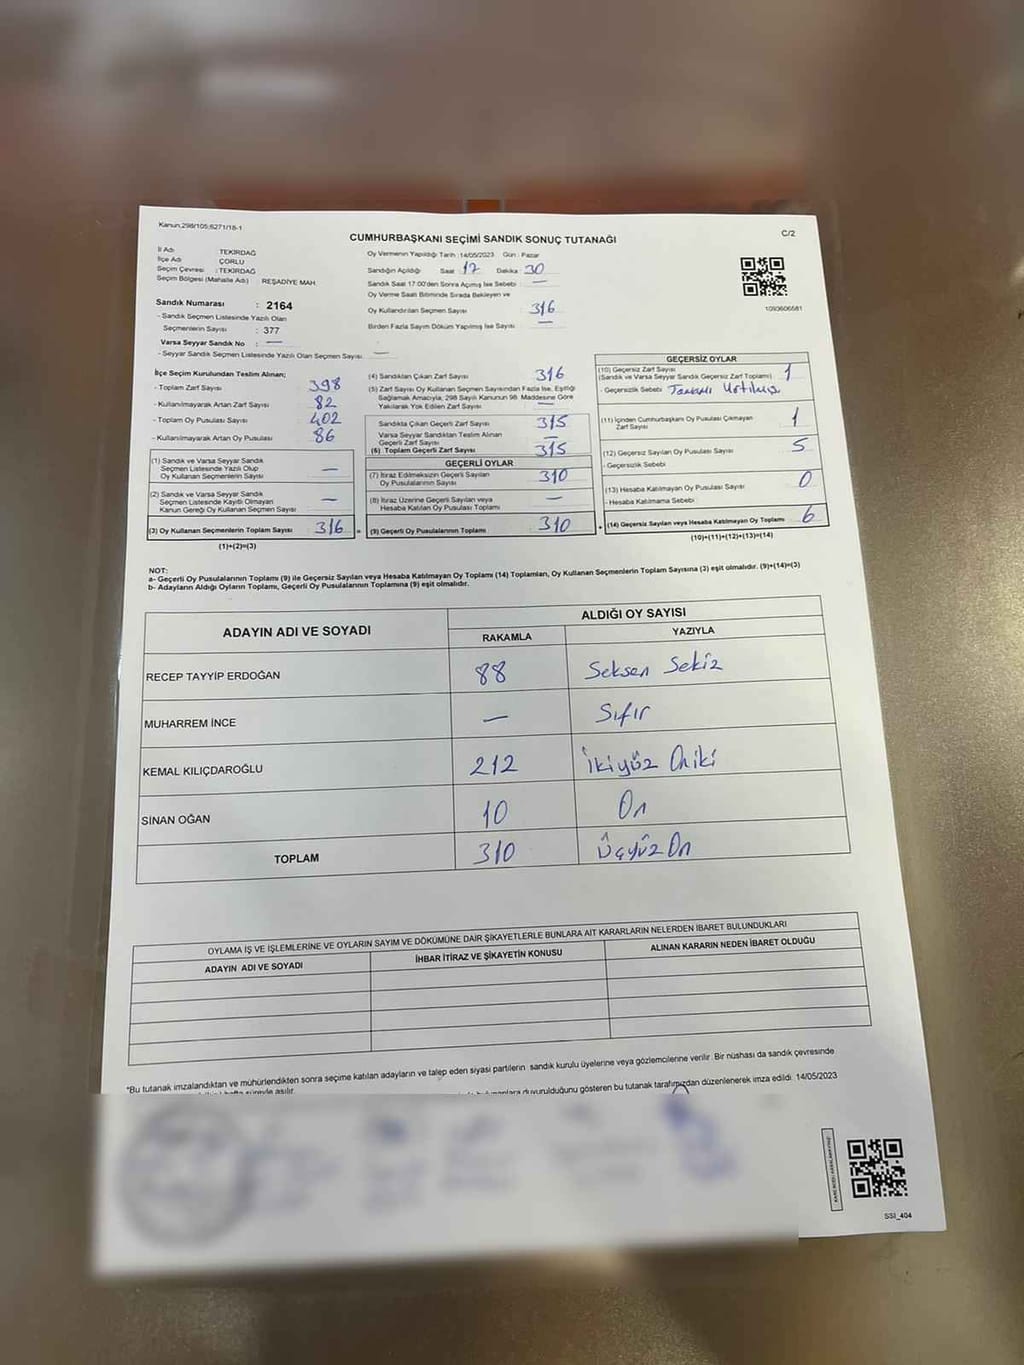 Kanun,298/105;6271/18-1
C/2
CUMHURBAŞKANI SEÇİMİ SANDIK SONUÇ TUTANAĞI
İl Adı : TEKİRDAĞ
İlçe Adı : ÇORLU
Seçim Çevresi : TEKİRDAĞ
Seçim Bölgesi (Mahalle Adı) : REŞADİYE MAH.
Sandık Numarası : 2164
- Sandık Seçmen Listesinde Yazılı Olan
Seçmenlerin Sayısı : 377
Varsa Seyyar Sandık No : —
- Seyyar Sandık Seçmen Listesinde Yazılı Olan Seçmen Sayısı : —
Oy Vermenin Yapıldığı Tarih : 14/05/2023 Gün : Pazar
Sandığın Açıldığı Saat 17 Dakika : 30
Sandık Saat 17:00'den Sonra Açılmış İse Sebebi : —
Oy Verme Saati Bitiminde Sırada Bekleyen ve
Oy Kullandırılan Seçmen Sayısı : 316
Birden Fazla Sayım Döküm Yapılmış İse Sayısı : —
1093606581
İlçe Seçim Kurulundan Teslim Alınan;
- Toplam Zarf Sayısı : 398
- Kullanılmayarak Artan Zarf Sayısı : 82
- Toplam Oy Pusulası Sayısı : 402
- Kullanılmayarak Artan Oy Pusulası : 86
(1) Sandık ve Varsa Seyyar Sandık
Seçmen Listesinde Yazılı Olup
Oy Kullanan Seçmenlerin Sayısı —
(2) Sandık ve Varsa Seyyar Sandık
Seçmen Listesinde Kayıtlı Olmayan
Kanun Gereği Oy Kullanan Seçmen Sayısı —
(3) Oy Kullanan Seçmenlerin Toplam Sayısı 316 =
(1)+(2)=(3)
(4) Sandıktan Çıkan Zarf Sayısı 316
(5) Zarf Sayısı Oy Kullanan Seçmen Sayısından Fazla İse, Eşitliği
Sağlamak Amacıyla, 298 Sayılı Kanunun 98. Maddesine Göre
Yakılarak Yok Edilen Zarf Sayısı —
Sandıkta Çıkan Geçerli Zarf Sayısı 315
Varsa Seyyar Sandıktan Teslim Alınan
Geçerli Zarf Sayısı —
(6) Toplam Geçerli Zarf Sayısı 315
GEÇERLİ OYLAR
(7) İtiraz Edilmeksizin Geçerli Sayılan
Oy Pusulasının Sayısı 310
(8) İtiraz Üzerine Geçerli Sayılan veya
Hesaba Katılan Oy Pusulası Toplamı —
(9) Geçerli Oy Pusulalarının Toplamı 310 +
GEÇERSİZ OYLAR
(10) Geçersiz Zarf Sayısı
(Sandık ve Varsa Seyyar Sandık Geçersiz Zarf Toplamı) 1
- Geçersizlik Sebebi :
(11) İçinden Cumhurbaşkanı Oy Pusulası Çıkmayan
Zarf Sayısı 1
(12) Geçersiz Sayılan Oy Pusulası Sayısı 5
- Geçersizlik Sebebi
(13) Hesaba Katılmayan Oy Pusulası Sayısı 0
- Hesaba Katılmama Sebebi
(14) Geçersiz Sayılan veya Hesaba Katılmayan Oy Toplamı 6
(10)+(11)+(12)+(13)=(14)
NOT:
a- Geçerli Oy Pusulalarının Toplamı (9) ile Geçersiz Sayılan veya Hesaba Katılmayan Oy Toplamı (14) Toplamları, Oy Kullanan Seçmenlerin Toplam Sayısına (3) eşit olmalıdır. (9)+(14)=(3)
b- Adayların Aldığı Oyların Toplamı, Geçerli Oy Pusulalarının Toplamına (9) eşit olmalıdır.
ADAYIN ADI VE SOYADI
ALDIĞI OY SAYISI
RAKAMLA YAZIYLA
RECEP TAYYİP ERDOĞAN 88 Seksen Sekiz
MUHARREM İNCE — Sıfır
KEMAL KILIÇDAROĞLU 212 İkiyüz Oniki
SİNAN OĞAN 10 On
TOPLAM 310 Üçyüz On
OYLAMA İŞ VE İŞLEMLERİNE VE OYLARIN SAYIM VE DÖKÜMÜNE DAİR ŞİKAYETLERLE BUNLARA AİT KARARLARIN NELERDEN İBARET BULUNDUKLARI
ADAYIN ADI VE SOYADI İHBAR İTİRAZ VE ŞİKAYETİN KONUSU ALINAN KARARIN NEDEN İBARET OLDUĞU
*Bu tutanak imzalandıktan ve mühürlendikten sonra seçime katılan adayların ve talep eden siyasi partilerin sandık kurulu üyelerine veya gözlemcilerine verilir. Bir nüshası da sandık çevresinde
hafta süreyle asılır. duyurulduğunu gösteren bu tutanak tarafımızdan düzenlenerek imza edildi. 14/05/2023
SSI_404